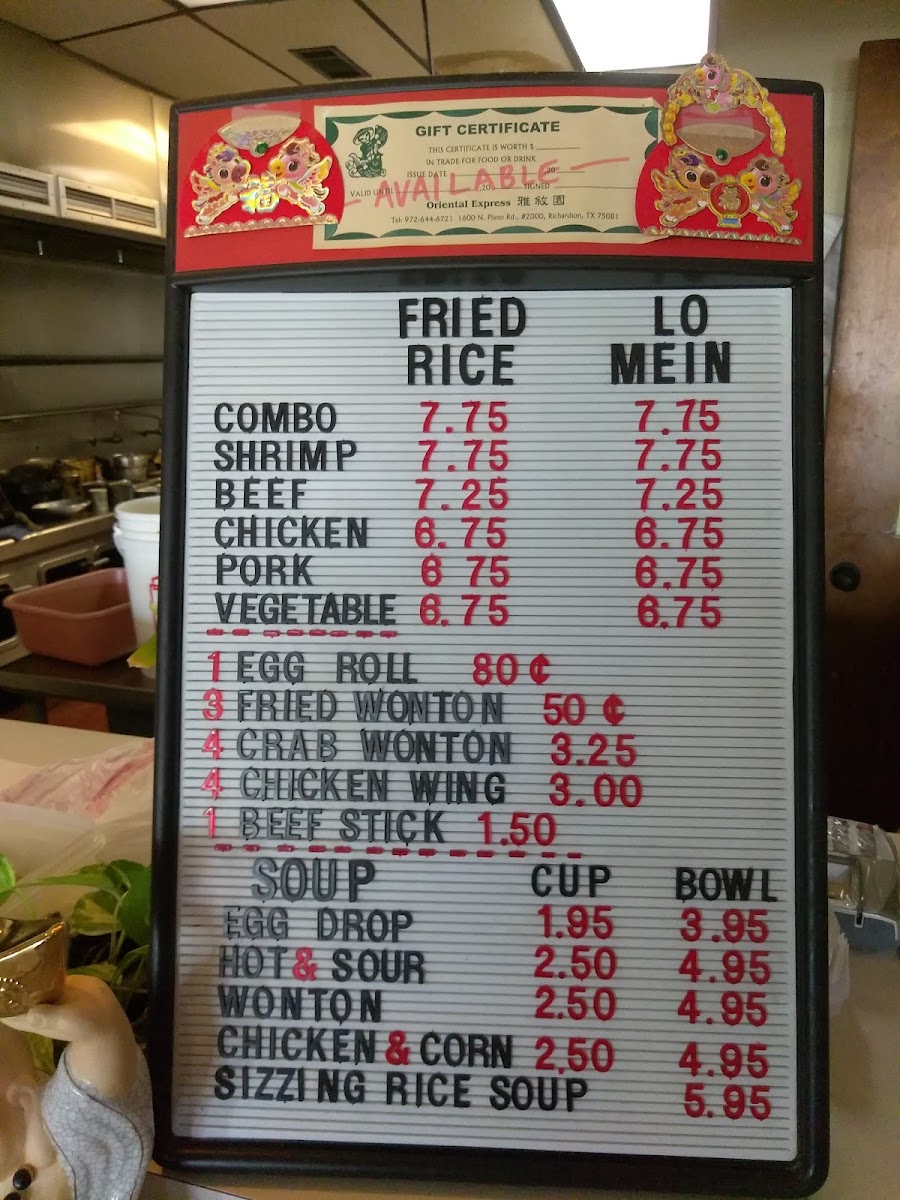 GIFT CERTIFICATE
THIS CERTIFICATE IS WORTH $
IN TRADE FOR FOOD OR DRINK
ISSUE DATE 20
AVAILABLE
VALID UNTIL ,20 SIGNED
Oriental Express 雅敘園
Tel: 972-644-6721 1600 N. Plano Rd., #2000, Richardson, TX 75081
FRIED LO
RICE MEIN
COMBO 7.75 7.75
SHRIMP 7.75 7.75
BEEF 7.25 7.25
CHICKEN 6.75 6.75
PORK 6 75 6.75
VEGETABLE 6.75 6.75
1 EGG ROLL 80¢
3 FRIED WONTON 50 ¢
4 CRAB WONTON 3.25
4 CHICKEN WING 3.00
1 BEEF STICK 1.50
SOUP CUP BOWL
EGG DROP 1.95 3.95
HOT & SOUR 2.50 4.95
WONTON 2.50 4.95
CHICKEN & CORN 2.50 4.95
SIZZING RICE SOUP 5.95